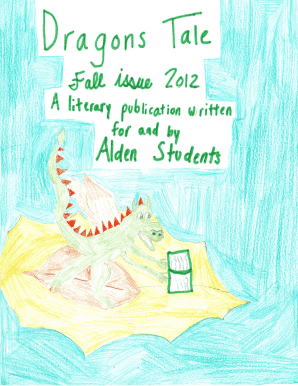 Dragons Tale
Fall issue 2012
A literary publication written
for and by
Alden Students